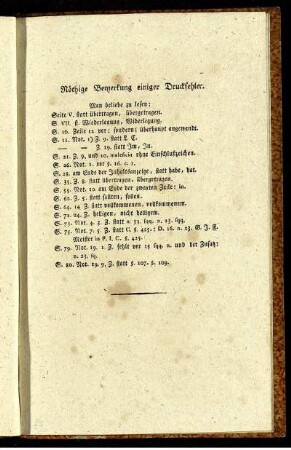 Nöthige Bemerkung einiger Druckfehler.
Man beliebe zu lesen:
Seite V. statt übertragen, übergetragen.
S. VII. st. Wiederlegung, Widerlegung.
S. 10. Zeile 12 vor: sondern; überhaupt angewandt.
S. 11. Not. 1) Z. 9. statt L. C.
— — Z. 19. statt Im, In.
S. 21. Z. 9, und 10. maleficia ohne Einschlußzeichen.
S. 26. Not. 1. st. §. 16. c. 1.
S. 28. am Ende der Inhaltsanzeige, statt habe, hat.
S. 35. Z. 2. statt übertragen, übergetragen.
S. 55. Not. 10. am Ende der zweiten Zeile: in.
S. 60. Z. 5. statt sollten, sollen.
S. 64. 14. Z. statt vollkommenen, vollkommenem.
S. 71. 24. Z. heiligen, nicht heiligem.
S. 73. Not. 4. 3. Z. statt a. 31. sqq. n. 23. sqq.
S. 75. Not. 7. 5. Z. statt C. §. 425.: D. 16. n. 23. G. J. F.
Meister in P. I. C. §. 425.
S. 79. Not. 19. 1. Z. fehlt vor 25 sqq. n. und der Zusatz:
n. 23. 69.
S. 80. Not. 19. 9. Z. statt §. 107. §. 109.